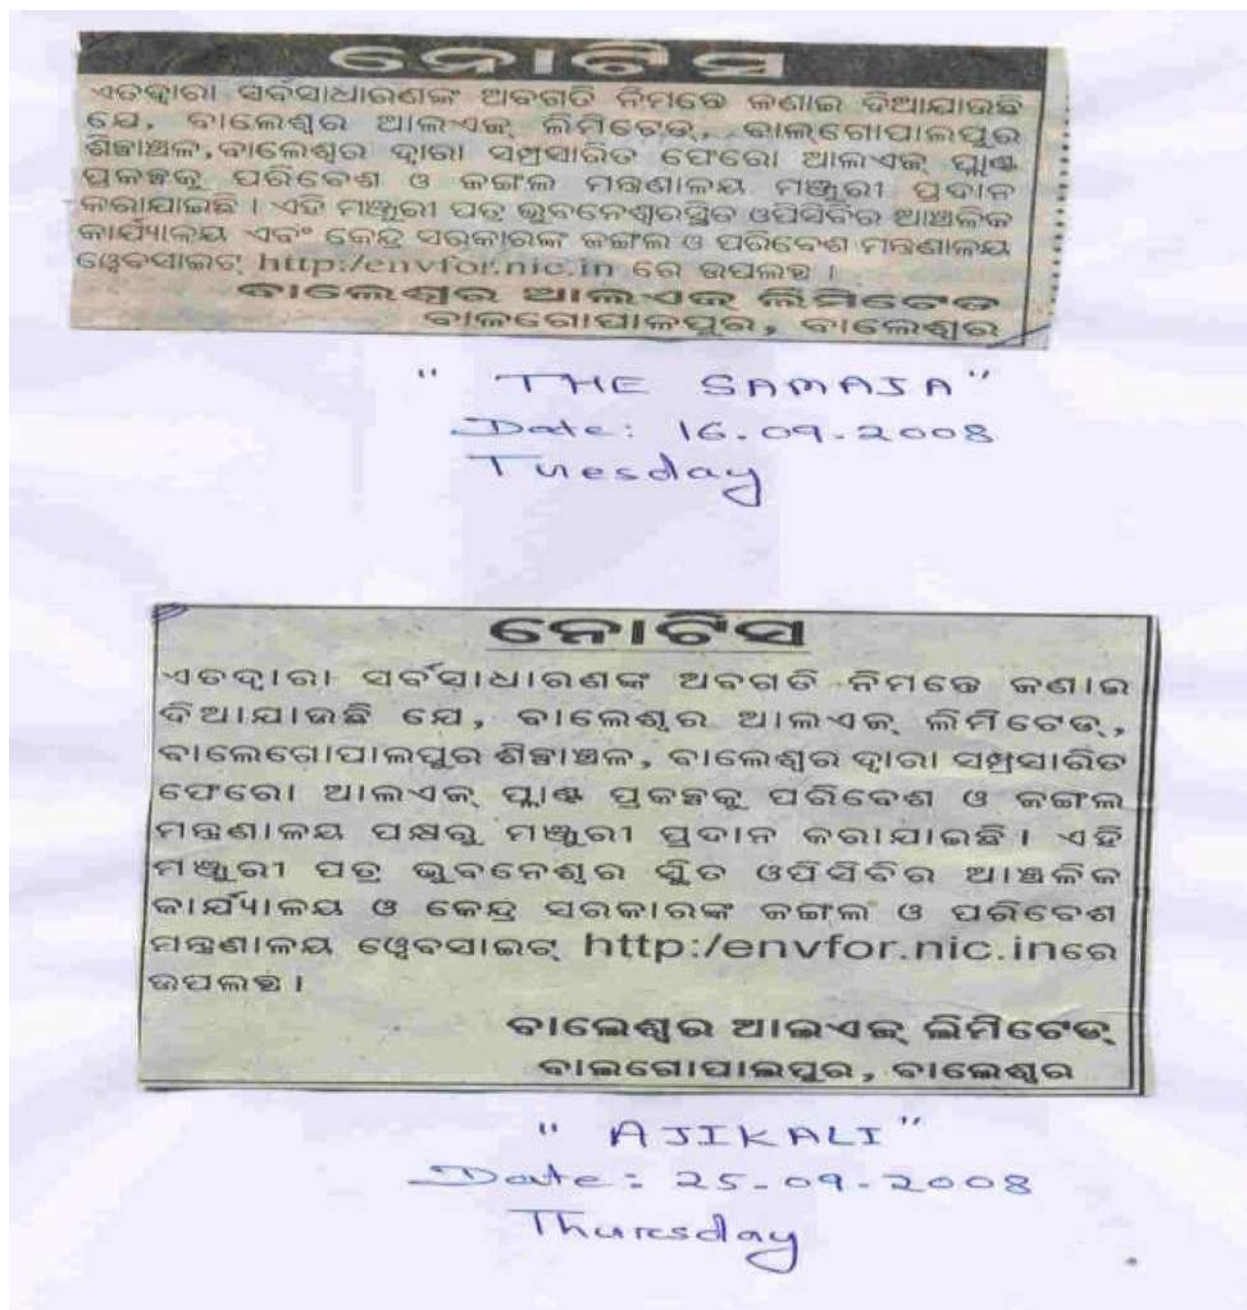 ନୋଟିସ
ଏତଦ୍ୱାରା ସର୍ବସାଧାରଣଙ୍କ ଅବଗତି ନିମନ୍ତେ ଜଣାଇ ଦିଆଯାଉଛି
ଯେ, ବାଲେଶ୍ୱର ଆଲଏଜ୍ ଲିମିଟେଡ୍, ବାଲ୍‌ଗୋପାଲପୁର
ଶିଳ୍ପାଞ୍ଚଳ,ବାଲେଶ୍ୱର ଦ୍ୱାରା ସମ୍ପ୍ରସାରିତ ଫେରୋ ଆଲଏଜ୍ ପ୍ଲାଣ୍ଟ
ପ୍ରକଳ୍ପକୁ ପରିବେଶ ଓ ଜଙ୍ଗଲ ମନ୍ତ୍ରଣାଳୟ ମଞ୍ଜୁରୀ ପ୍ରଦାନ
କରାଯାଇଛି । ଏହି ମଞ୍ଜୁରୀ ପତ୍ର ଭୁବନେଶ୍ୱରସ୍ଥିତ ଓପିସିବିର ଆଞ୍ଚଳିକ
କାର୍ଯ୍ୟାଳୟ ଏବଂ କେନ୍ଦ୍ର ସରକାରଙ୍କ ଜଙ୍ଗଲ ଓ ପରିବେଶ ମନ୍ତ୍ରଣାଳୟ
ୱେବସାଇଟ୍ http:/envfor.nic.in ରେ ଉପଲବ୍ଧ ।
ବାଲେଶ୍ୱର ଆଲଏଜ୍ ଲିମିଟେଡ
ବାଳଗୋପାଳପୁର, ବାଲେଶ୍ୱର
" THE SAMAJA"
Date: 16.09.2008
Tuesday
ନୋଟିସ
ଏତଦ୍ୱାରା ସର୍ବସାଧାରଣଙ୍କ ଅବଗତି ନିମନ୍ତେ ଜଣାଇ
ଦିଆଯାଉଛି ଯେ, ବାଲେଶ୍ୱର ଆଲଏଜ୍ ଲିମିଟେଡ୍,
ବାଲେଗୋପାଲପୁର ଶିଳ୍ପାଞ୍ଚଳ, ବାଲେଶ୍ୱର ଦ୍ୱାରା ସମ୍ପ୍ରସାରିତ
ଫେରୋ ଆଲଏଜ୍ ପ୍ଲାଣ୍ଟ ପ୍ରକଳ୍ପକୁ ପରିବେଶ ଓ ଜଙ୍ଗଲ
ମନ୍ତ୍ରଣାଳୟ ପକ୍ଷରୁ ମଞ୍ଜୁରୀ ପ୍ରଦାନ କରାଯାଇଛି । ଏହି
ମଞ୍ଜୁରୀ ପତ୍ର ଭୁବନେଶ୍ୱର ସ୍ଥିତ ଓପିସିବିର ଆଞ୍ଚଳିକ
କାର୍ଯ୍ୟାଳୟ ଓ କେନ୍ଦ୍ର ସରକାରଙ୍କ ଜଙ୍ଗଲ ଓ ପରିବେଶ
ମନ୍ତ୍ରଣାଳୟ ୱେବସାଇଟ୍ http:/envfor.nic.inରେ
ଉପଲବ୍ଧ ।
ବାଲେଶ୍ୱର ଆଲଏଜ୍ ଲିମିଟେଡ୍
ବାଲଗୋପାଲପୁର, ବାଲେଶ୍ୱର
" AJIKALI"
Date: 25-09-2008
Thursday